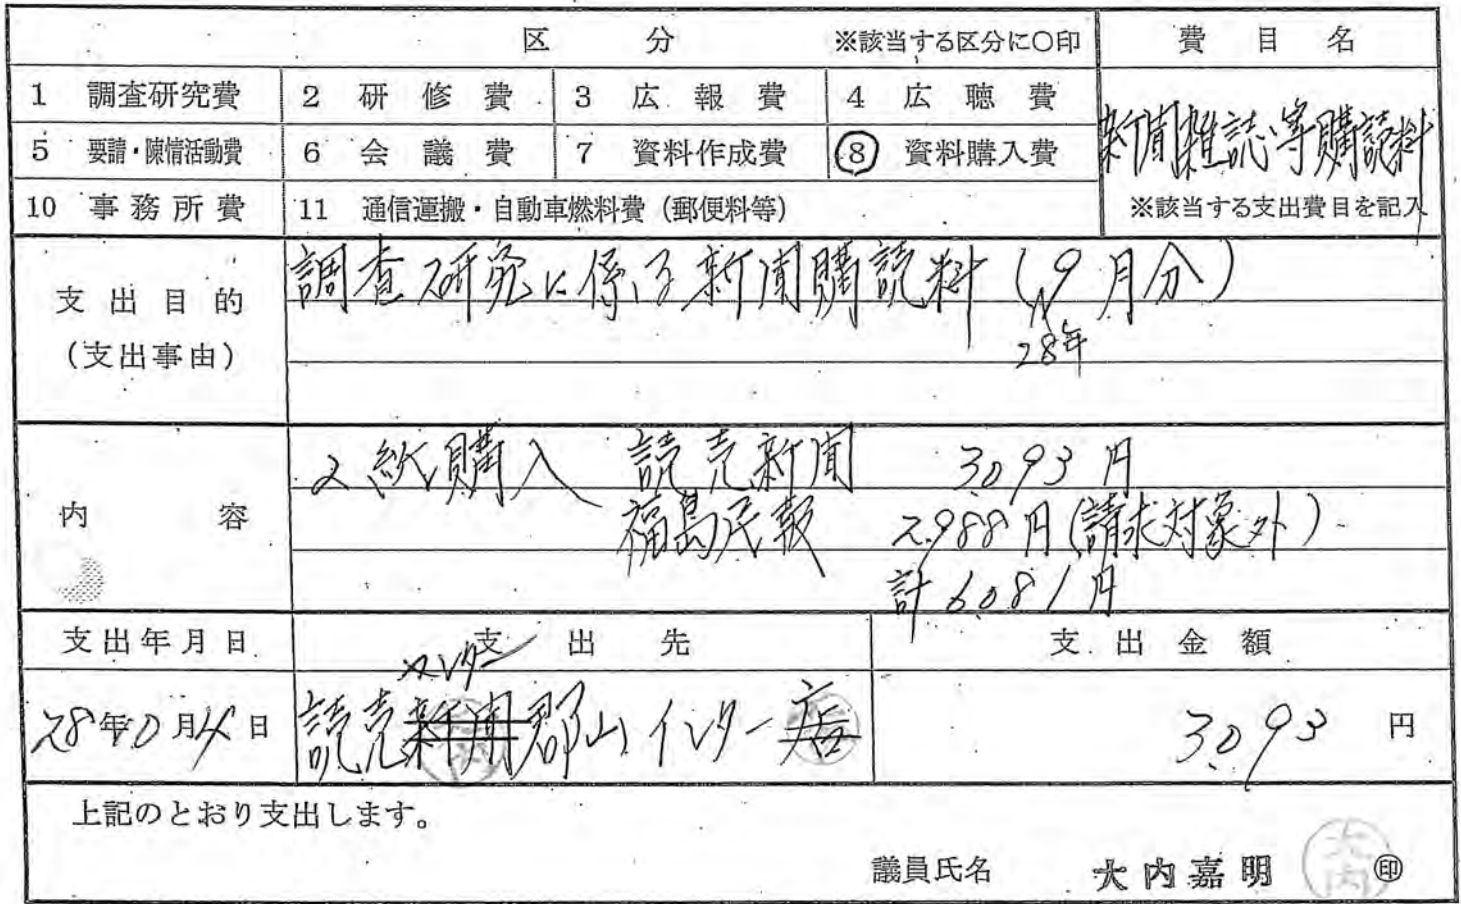 区 分 ※該当する区分に○印 費 目 名
1 調査研究費 2 研修費 3 広報費 4 広聴費
新聞雑誌等購読料
5 要請・陳情活動費 6 会議費 7 資料作成費 ⑧ 資料購入費
10 事務所費 11 通信運搬・自動車燃料費（郵便料等） ※該当する支出費目を記入
支出目的
（支出事由）
調査研究に係る新聞購読料（9月分）
28年
内 容
2紙購入 読売新聞 3,093円
福島民報 2,988円（請求対象外）
計6,081円
支出年月日 支出先 支出金額
センター
28年 月4日 読売新聞郡山インター店 3,093円
上記のとおり支出します。
議員氏名 大内嘉明 ㊞
大内